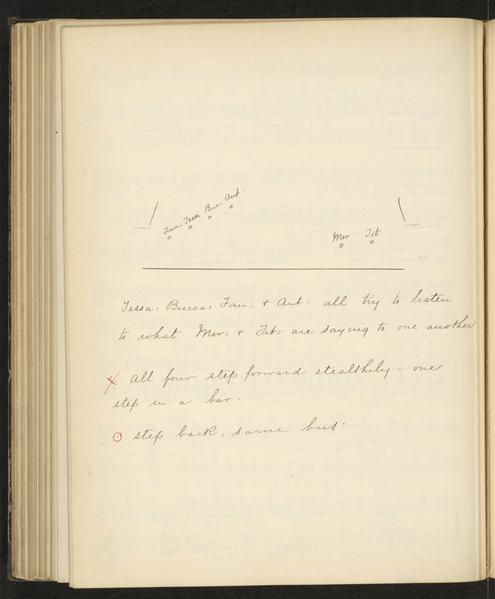 Fan: Tessa Buc: Ant:
Mir Tit
Tessa: Bucca: Fan: & Ant: all try to listen
to what Mir: & Tit: are saying to one another
X All four step forward stealthily - one
step in a bar.
step back, same bus: